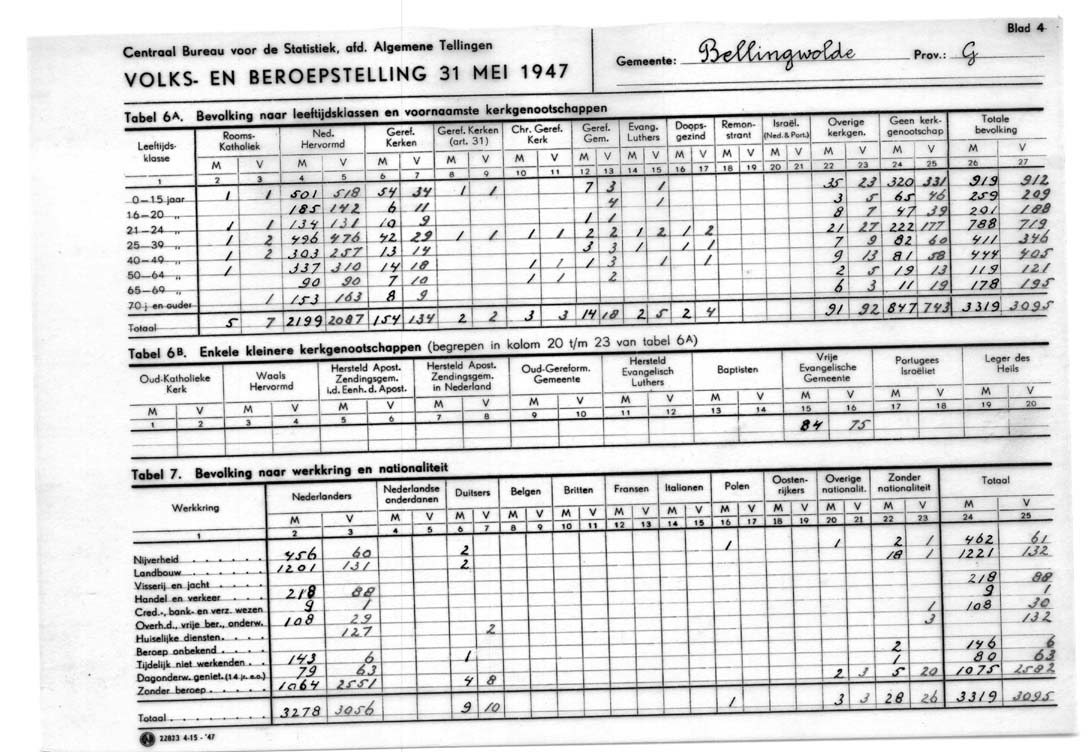 Blad 4
Centraal Bureau voor de Statistiek, afd. Algemene Tellingen
VOLKS- EN BEROEPSTELLING 31 MEI 1947
Gemeente: Bellingwolde Prov.: G
Tabel 6A. Bevolking naar leeftijdsklassen en voornaamste kerkgenootschappen
Leeftijds-klasse Rooms-Katholiek Ned. Hervormd Geref. Kerken Geref. Kerken (art. 31) Chr. Geref. Kerk Geref. Gem. Evang. Luthers Doops-gezind Remon-strant Israël. (Ned. & Port.) Overige kerkgen. Geen kerk-genootschap Totale bevolking
M V M V M V M V M V M V M V M V M V M V M V M V M V
1 2 3 4 5 6 7 8 9 10 11 12 13 14 15 16 17 18 19 20 21 22 23 24 25 26 27
0—15 jaar 1 1 501 518 54 34 1 1 7 3 1 35 23 320 331 919 912
16—20 „ 185 142 6 11 4 1 3 5 65 46 259 209
21—24 „ 1 1 134 131 10 9 1 1 8 7 47 39 201 188
25—39 „ 1 2 496 476 42 29 1 1 1 1 2 2 1 2 1 2 21 27 222 177 788 719
40—49 „ 1 2 303 257 13 14 3 3 1 1 1 7 9 82 60 411 346
50—64 „ 1 337 310 14 18 1 1 1 3 1 1 9 13 81 58 444 405
65—69 „ 90 90 7 10 1 1 2 2 5 19 13 119 121
70 j. en ouder 1 153 163 8 9 6 3 11 19 178 195
Totaal 5 7 2199 2087 154 134 2 2 3 3 14 18 2 5 2 4 91 92 847 743 3319 3095
Tabel 6B. Enkele kleinere kerkgenootschappen (begrepen in kolom 20 t/m 23 van tabel 6A)
Oud-Katholieke Kerk Waals Hervormd Hersteld Apost. Zendingsgem. i.d. Eenh. d. Apost. Hersteld Apost. Zendingsgem. in Nederland Oud-Gereform. Gemeente Hersteld Evangelisch Luthers Baptisten Vrije Evangelische Gemeente Portugees Israëliet Leger des Heils
M V M V M V M V M V M V M V M V M V M V
1 2 3 4 5 6 7 8 9 10 11 12 13 14 15 16 17 18 19 20
84 75
Tabel 7. Bevolking naar werkkring en nationaliteit
Werkkring Nederlanders Nederlandse onderdanen Duitsers Belgen Britten Fransen Italianen Polen Oosten-rijkers Overige nationalit. Zonder nationaliteit Totaal
M V M V M V M V M V M V M V M V M V M V M V M V
1 2 3 4 5 6 7 8 9 10 11 12 13 14 15 16 17 18 19 20 21 22 23 24 25
Nijverheid 456 60 2 1 1 2 1 462 61
Landbouw 1201 131 2 18 1 1221 132
Visserij en jacht
Handel en verkeer 218 88 218 88
Cred.-, bank- en verz. wezen 9 1 9 1
Overh.d., vrije ber., onderw. 108 29 1 108 30
Huiselijke diensten 127 2 3 132
Beroep onbekend
Tijdelijk niet werkenden 143 6 1 2 146 6
Dagonderw. geniet. (14 jr. e.o.) 79 63 1 80 63
Zonder beroep 1064 2551 4 8 2 3 5 20 1075 2582
Totaal 3278 3056 9 10 1 3 3 28 26 3319 3095
22823 4-15 - '47